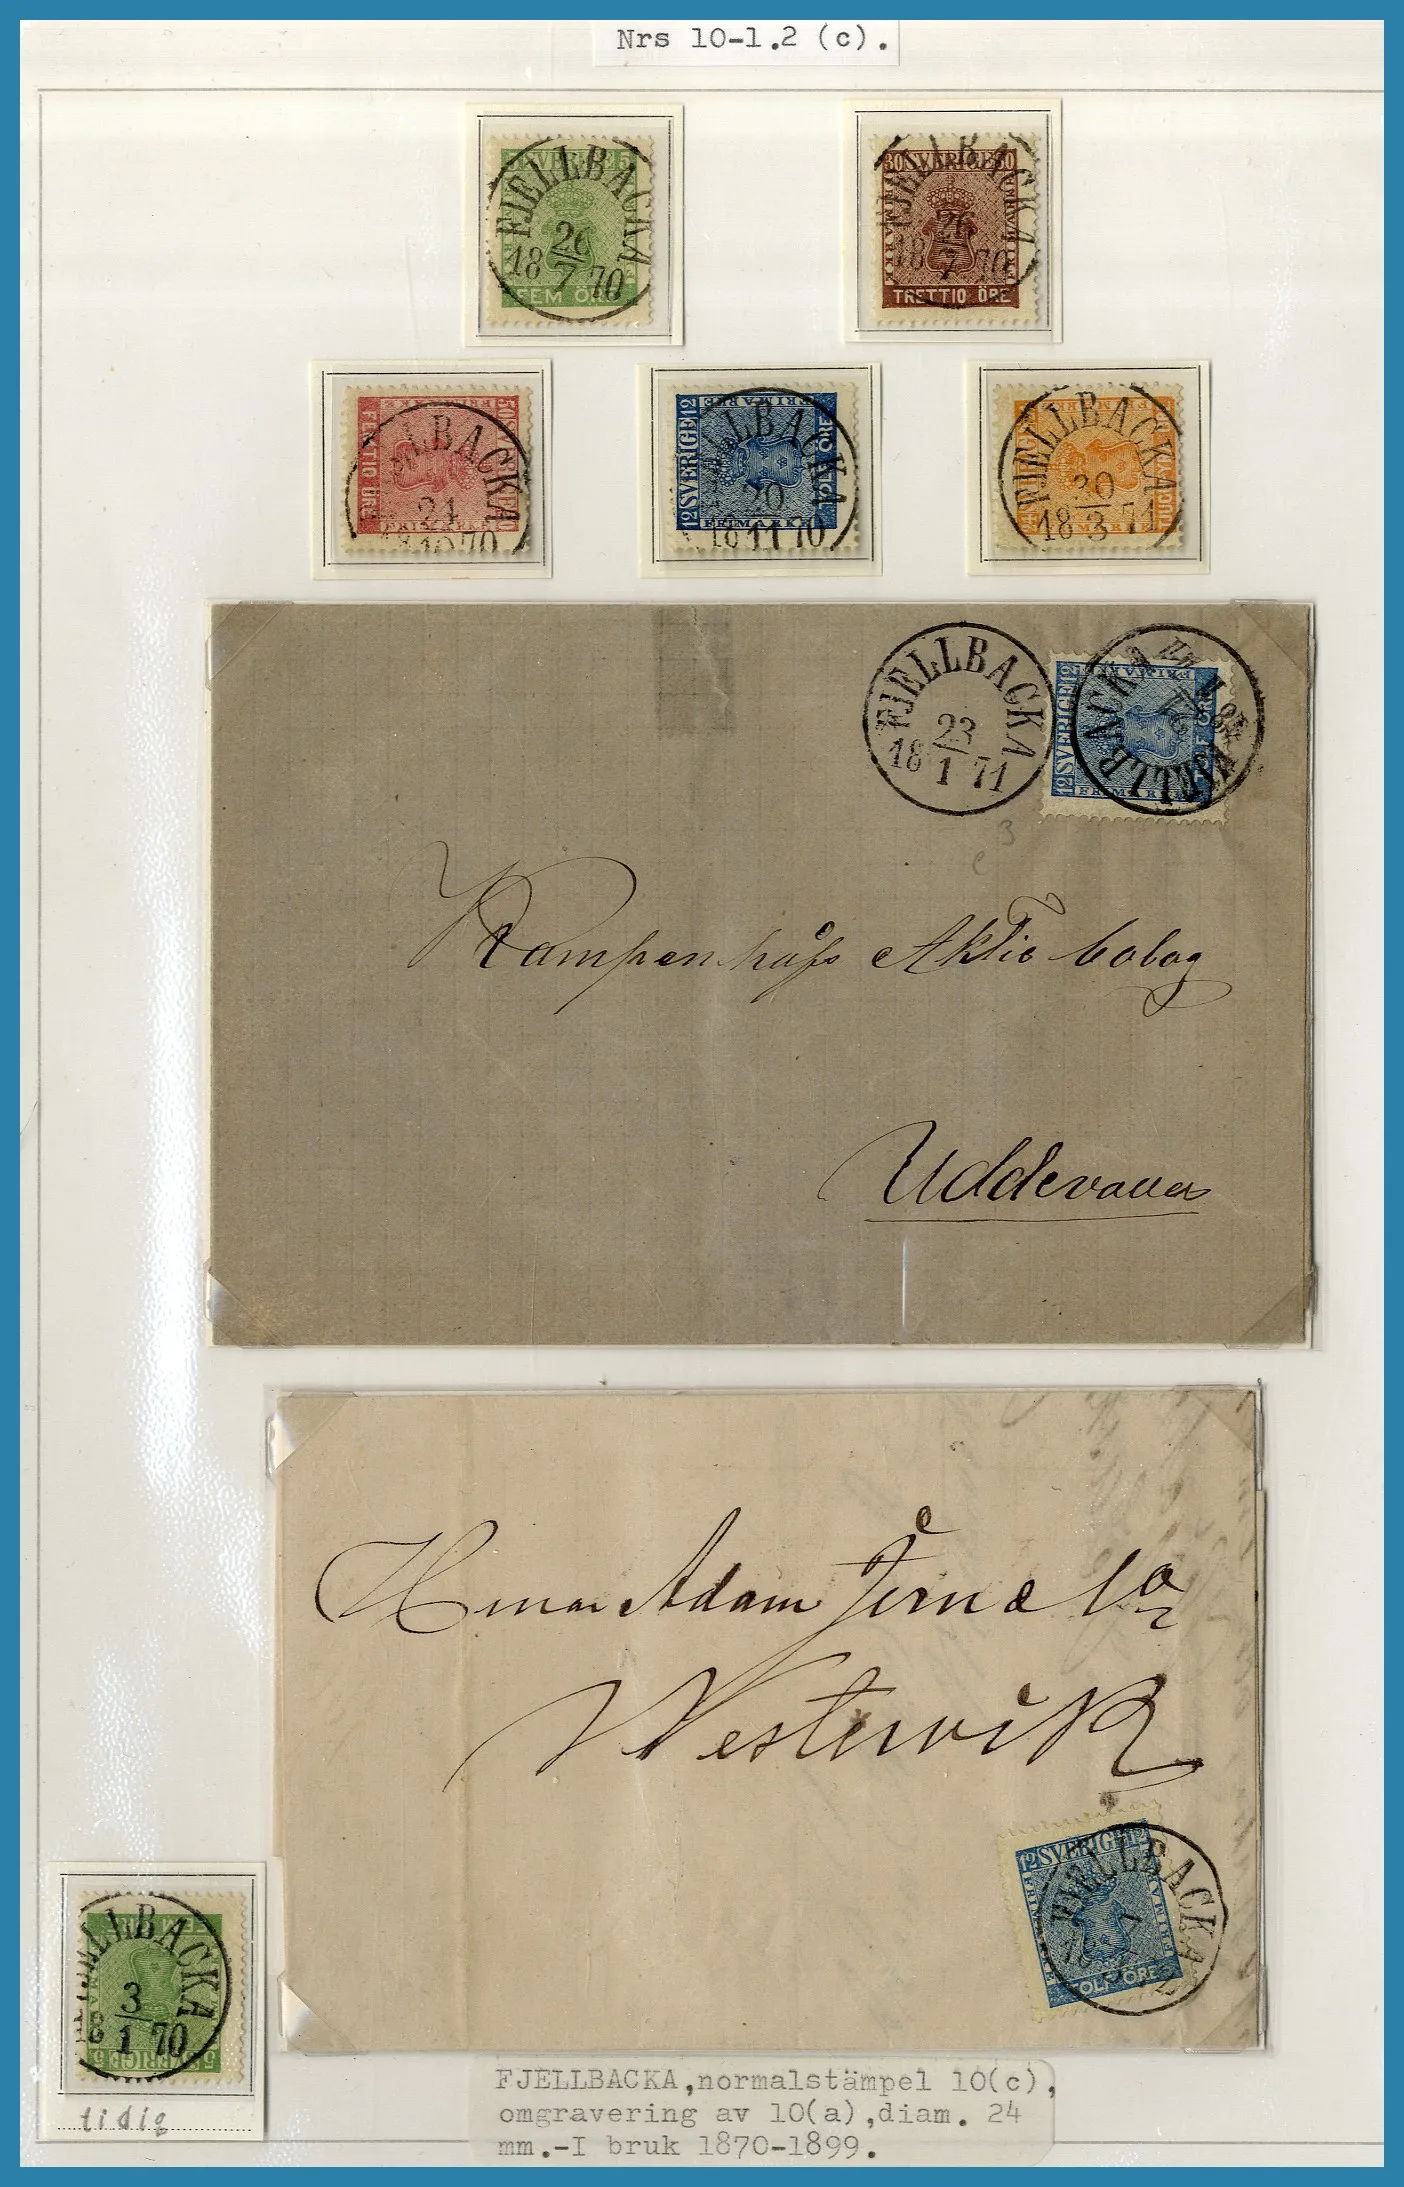 Nrs 10-1.2 (c).
SVERIGE 5
FEM ÖRE
FJELLBACKA
26
18 7 70
30 SVERIGE 30
FRIMÄRKE
TRETTIO ÖRE
FJELLBACKA
26
18 7 70
50 SVERIGE
FRIMÄRKE
FEMTIO ÖRE
LLBACKA
24
10 70
12 SVERIGE 12
FRIMÄRKE
FRIMÄRKE
TOLF ÖRE
FJELLBACKA
20
18 11 70
FJELLBACKA
30
18 3 71
FJELLBACKA
23
18 1 71
12 SVERIGE 12
FRIMÄRKE
FJELLBACKA
23
18 1 71
Kampenhofs Aktie bolag
Uddevalla
Herrar Adam
Westerwik
12 SVERIGE 12
TOLF ÖRE
FJELLBACKA
FJELLBACKA
3
1 70
5 SVERIGE 5
tidig
FJELLBACKA,normalstämpel 10(c),
omgravering av 10(a),diam. 24
mm.-I bruk 1870-1899.